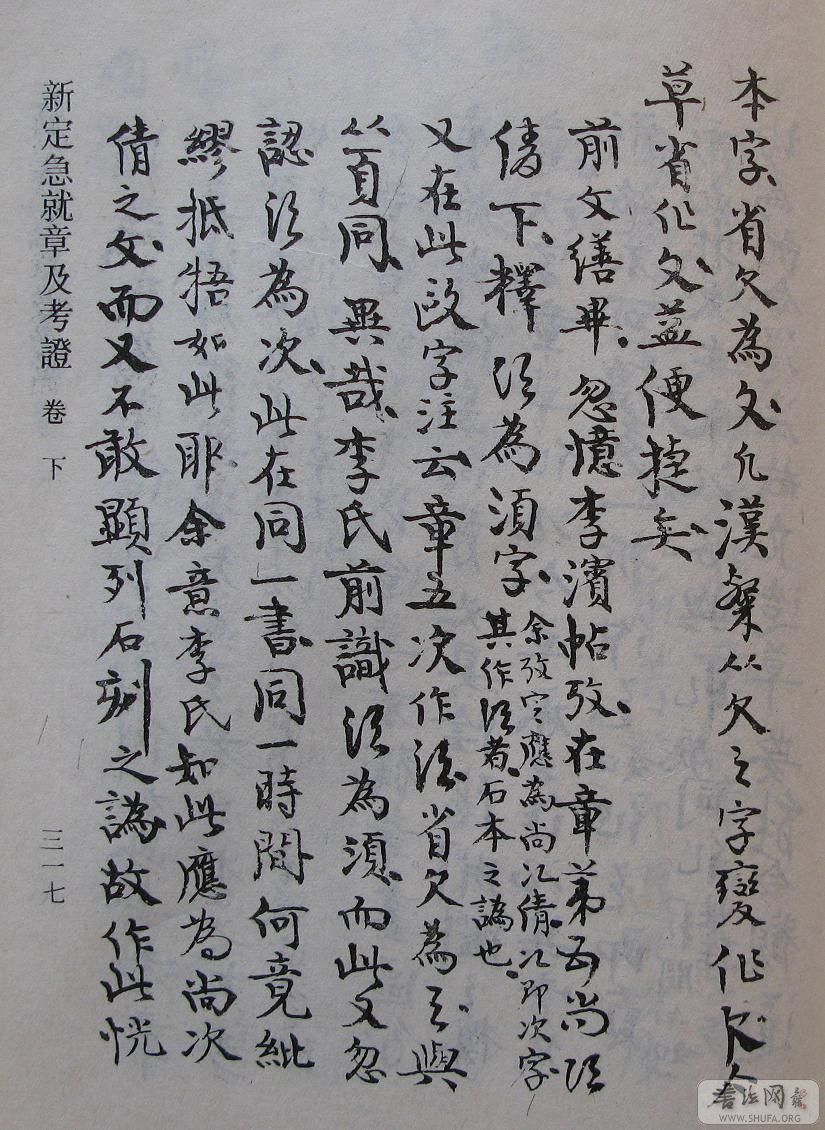 本字省欠為攵凡漢隸从欠之字變作欠今
草省作攵益便捷矣
前文繕畢忽憶李濱帖攷在章第五尚次
倩下釋須為須字余攷定應為尚次倩次即次字
其作須者石本之譌也
又在此段字注云章五次作須省欠為之與
从頁同異哉李氏前識須為須而此又忽
認須為次此在同一書同一時間何竟紕
繆抵牾如此耶余意李氏知此應為尚次
倩之文而又不敢顯列石刻之譌故作此恍
新定急就章及考證 卷下
三一七
書法网
WWW.SHUFA.ORG